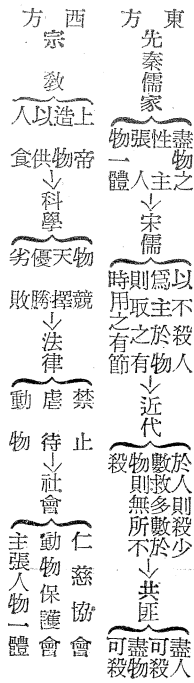 東方
先秦儒家
盡物之
性主
張人
物一體
宋儒
以不殺人
爲主於物
則取之有
時用之有節
近代
於人則殺少
數救多數於
物則無所不
殺
共匪
盡人可殺
盡物可殺
西方
宗教
上帝
造物
以供
人食
科學
物競
天擇
優勝
劣敗
法律
禁止
虐待
動物
社會
仁慈協會
動物保護會
主張人物一體